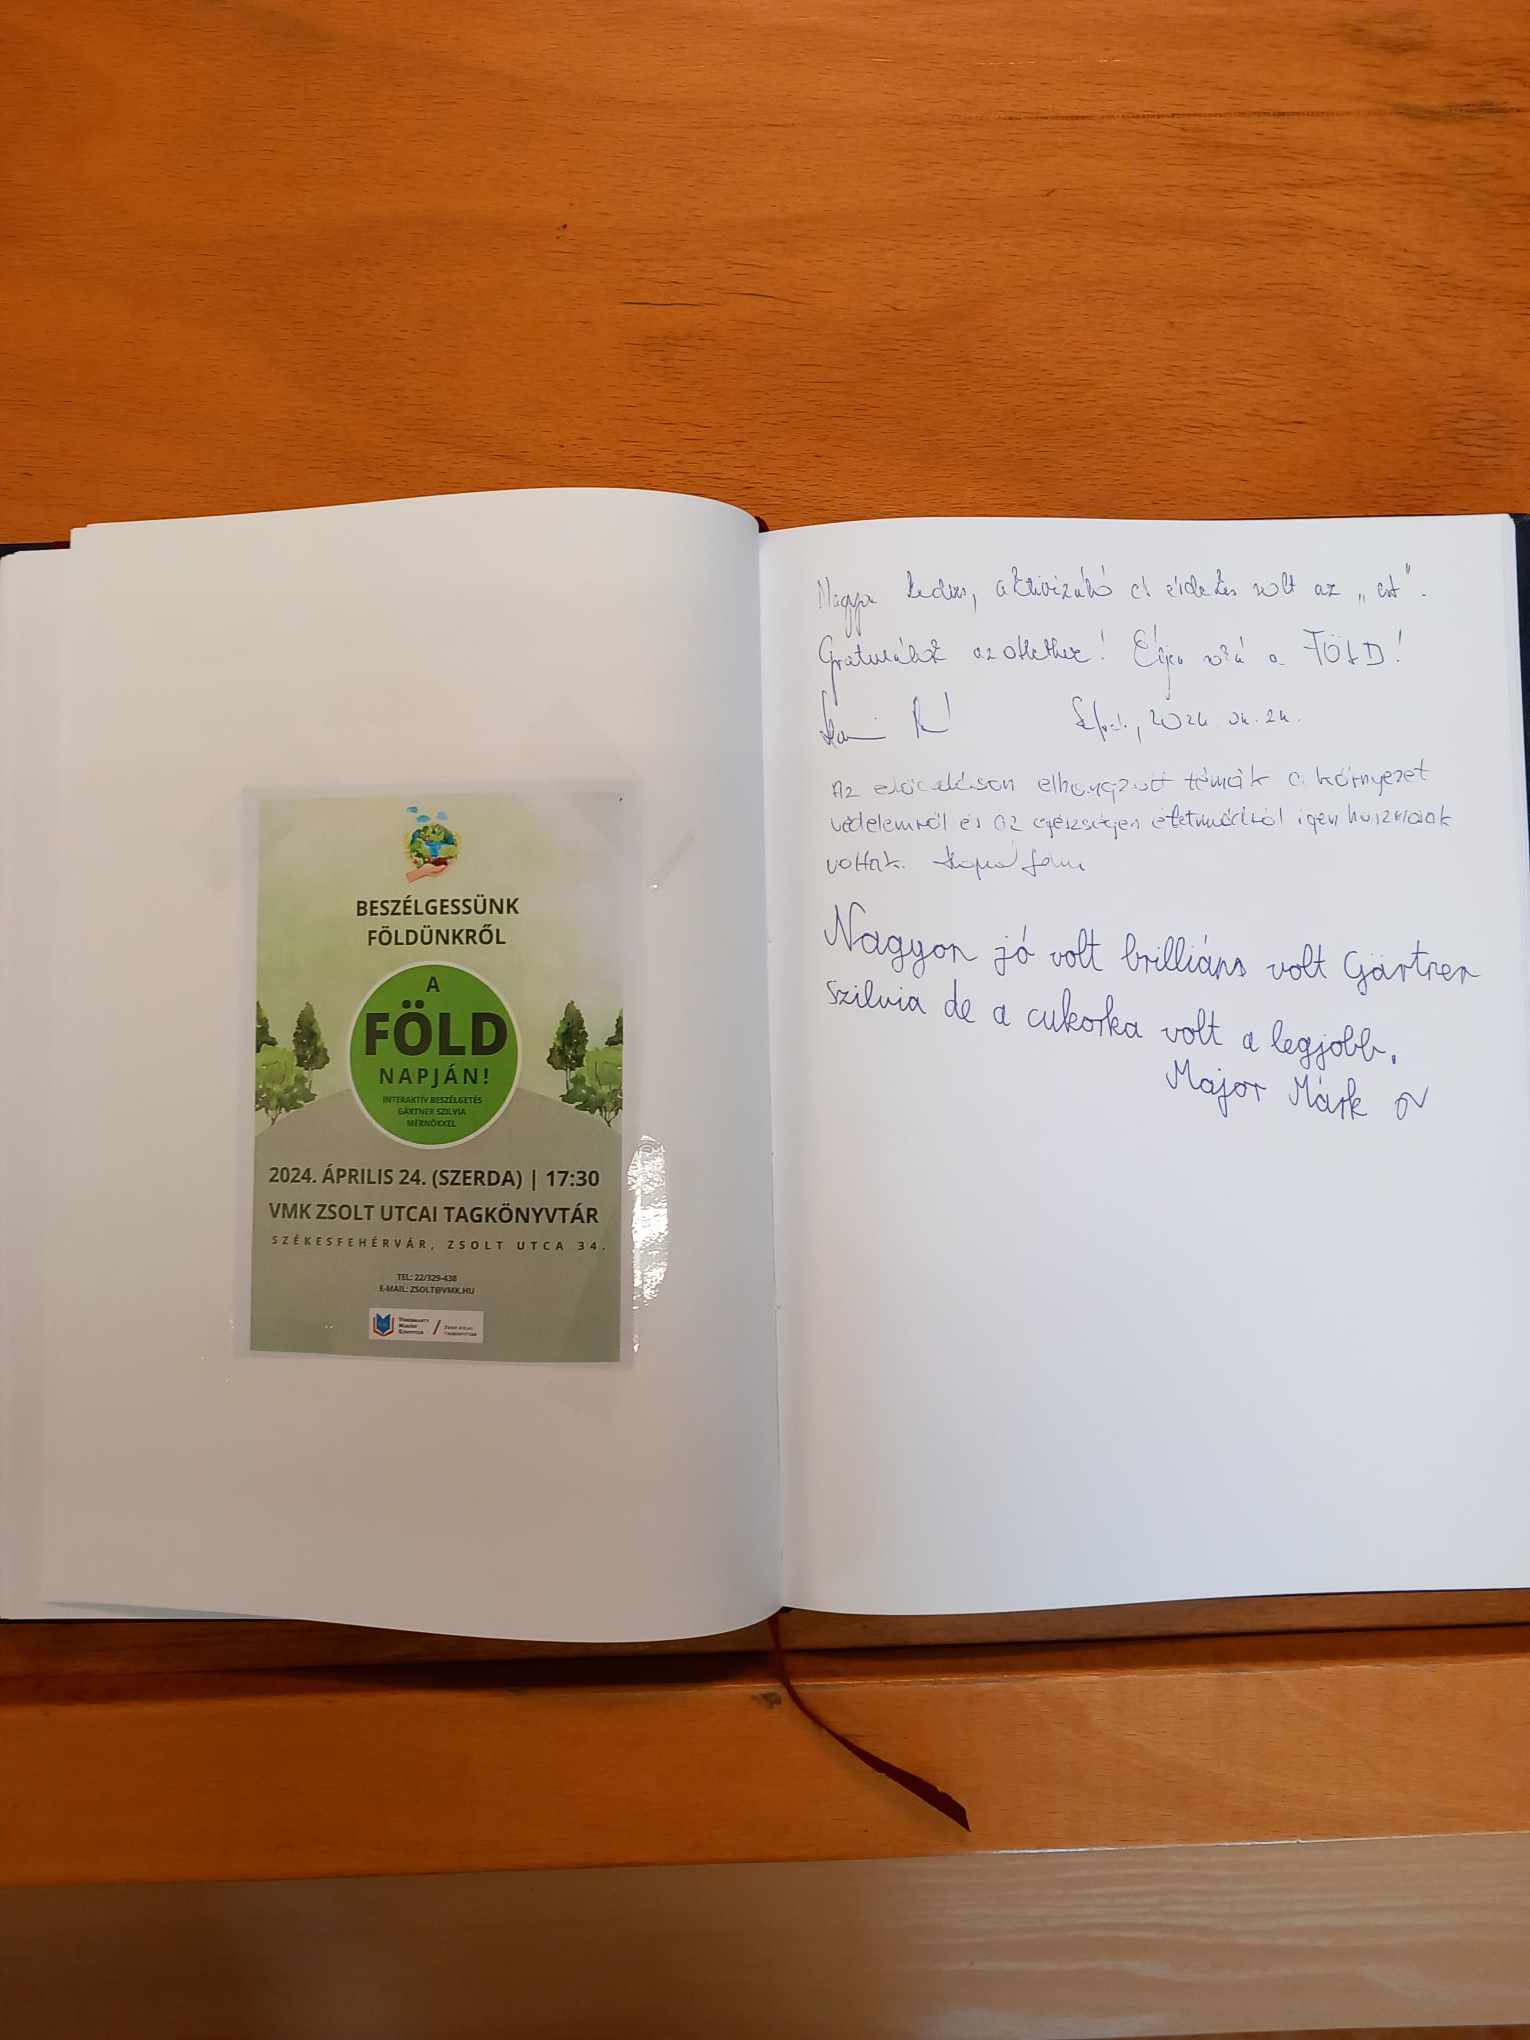 BESZÉLGESSÜNK
FÖLDÜNKRŐL
A
FÖLD
NAPJÁN!
INTERAKTÍV BESZÉLGETÉS
GÄRTNER SZILVIA
MÉRNÖKKEL
2024. ÁPRILIS 24. (SZERDA) | 17:30
VMK ZSOLT UTCAI TAGKÖNYVTÁR
SZÉKESFEHÉRVÁR, ZSOLT UTCA 34.
TEL: 22/329-438
E-MAIL: ZSOLT@VMK.HU
VÖRÖSMARTY
MIHÁLY
KÖNYVTÁR
ZSOLT UTCAI
TAGKÖNYVTÁR
Nagyon kedves, aktivizáló és érdekes volt az „est".
Gratulálok az ötlethez! Éljen soká a FÖLD!
2024. 04. 24.
Az előadáson elhangzott témák a környezet
védelemről és az egészséges életmódról igen hasznosak
voltak.
Nagyon jó volt brilliáns volt Gärtner
Szilvia de a cukorka volt a legjobb.
Major Márk